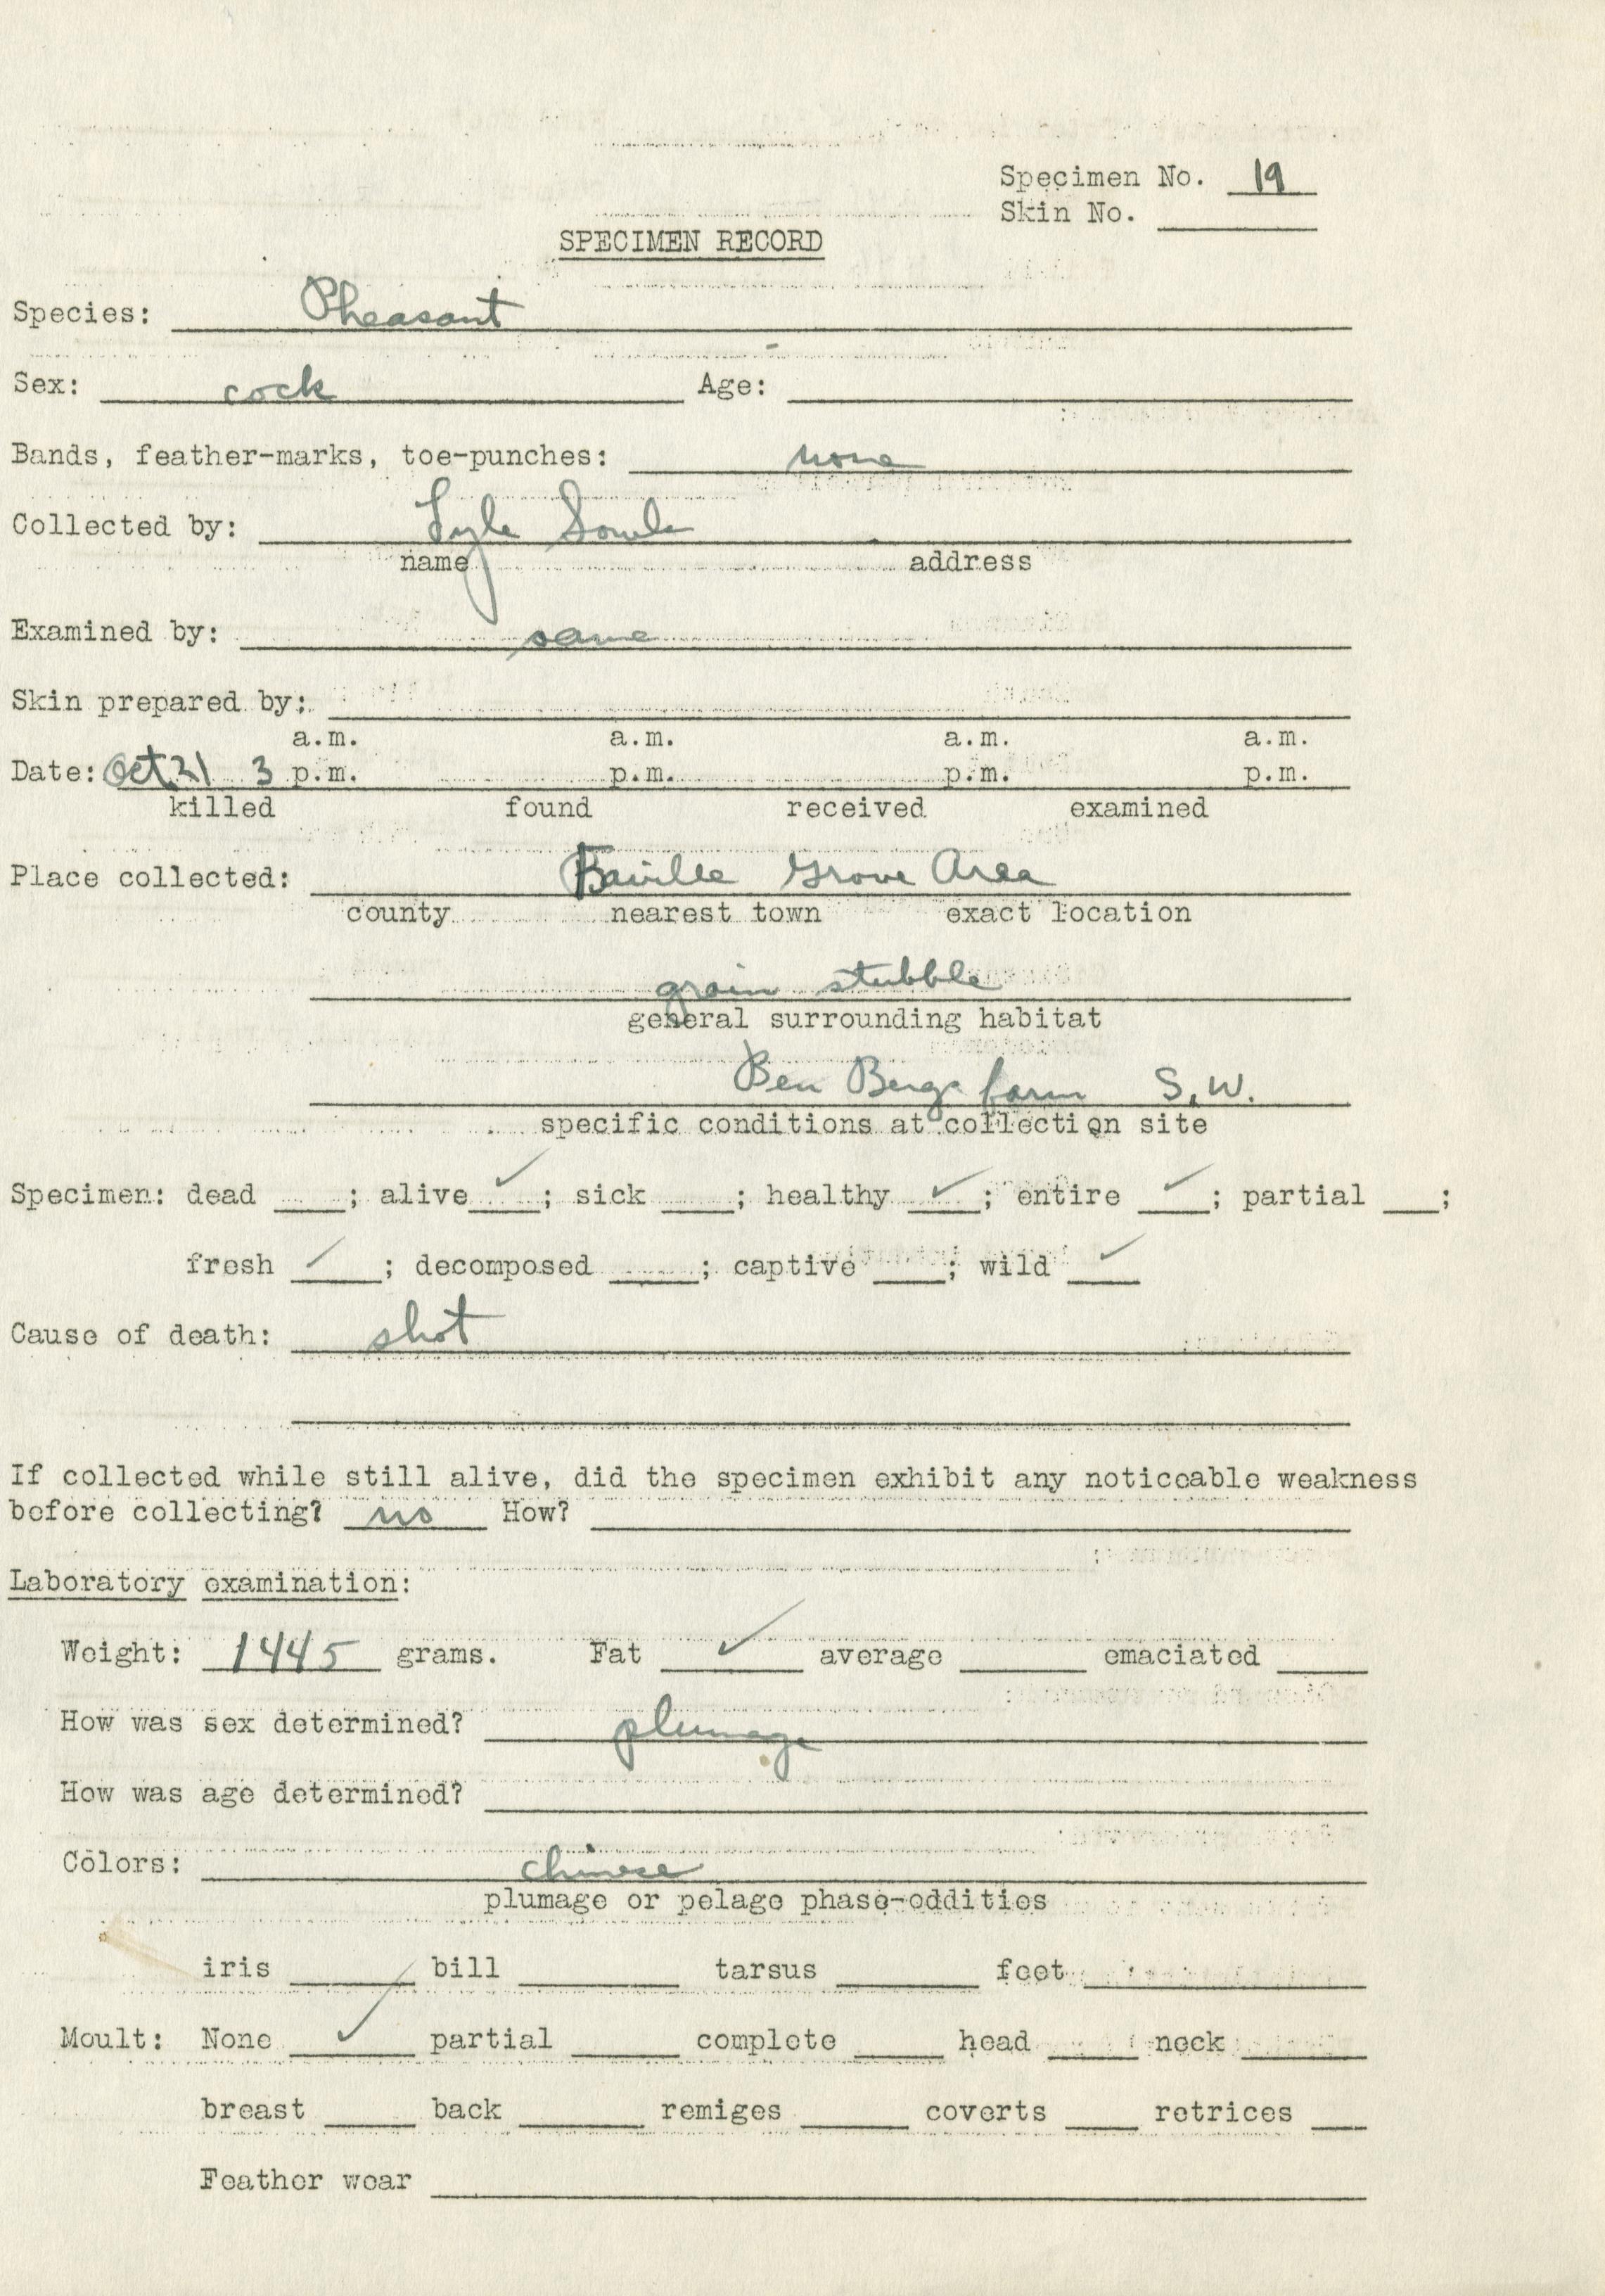 Specimen No. 19
Skin No. ____
SPECIMEN RECORD
Species: Pheasant
Sex: cock Age: ____
Bands, feather-marks, toe-punches: none
Collected by: Lyle Sowls
name address
Examined by: same
Skin prepared by: ____
a.m. a.m. a.m. a.m.
Date: Oct 21 3 p.m. p.m. p.m. p.m.
killed found received examined
Place collected: Faville Grove Area
county nearest town exact location
grain stubble
general surrounding habitat
Ben Bergs farm S.W.
specific conditions at collection site
Specimen: dead ____; alive ✓; sick ____; healthy ✓; entire ✓; partial ___;
fresh ✓; decomposed ____; captive ____; wild ✓
Cause of death: shot
If collected while still alive, did the specimen exhibit any noticeable weakness
before collecting? no How? ____
Laboratory examination:
Weight: 1445 grams. Fat ✓ average ____ emaciated ____
How was sex determined? plumage
How was age determined? ____
Colors: chinese
plumage or pelage phase-oddities
iris ____ bill ____ tarsus ____ feet ____
Moult: None ✓ partial ____ complete ____ head ____ neck ____
breast ____ back ____ remiges ____ coverts ____ retrices ____
Feather wear ____